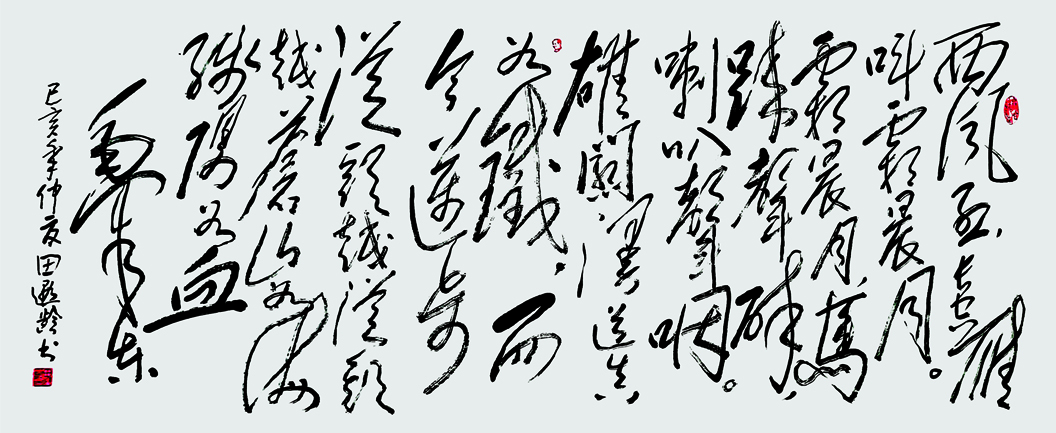 西風烈，長空雁
叫霜晨月。
霜晨月，馬
蹄聲碎，
喇叭聲咽。
雄關漫道真
如鐵。而
今邁步
從頭越從頭
越蒼山如海
殘陽如血
毛澤東
己亥年仲夏田齡书